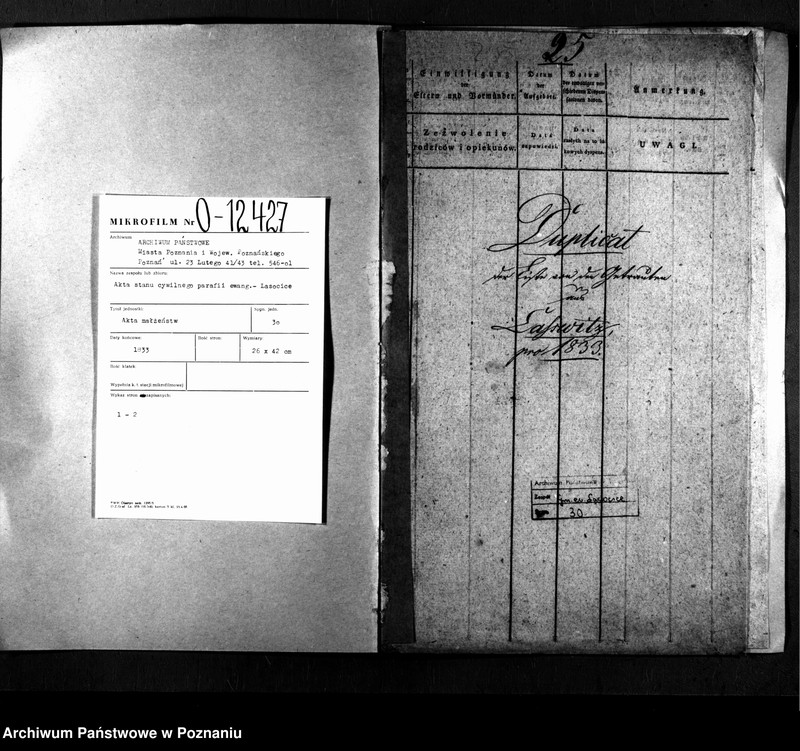 MIKROFILM Nr O-12427
Archiwum
ARCHIWUM PAŃSTWOWE
Miasta Poznania i Wojew. Poznańskiego
Poznań ul. 23 Lutego 41/43 tel. 546-01
Nazwa zespołu lub zbioru:
Akta stanu cywilnego parafii ewang.- Lasocice
Tytuł jednostki
Akta małżeństw
sygn. jedn.
30
Daty końcowe:
1833
Ilość stron:
Wymiary:
26 x 42 cm
Ilość klatek
Wypełnia k. t. stacji mikrofilmowej
Wykaz stron
1 - 2
25
Einwilligung
der
Eltern und Vormünder.
Datum
der
Aufgebote.
Datum
Anmerkung.
Zezwolenie
rodziców i opiekunów.
Data
zapowiedzi.
Data
UWAGI.
Duplicat
der Liste von den Getrauten
aus
Laßwitz,
pro 1833.
Archiwum Państwowe
Zespół
gm. ew. Lasocice
30
Archiwum Państwowe w Poznaniu